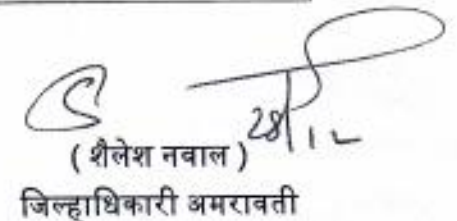 28/12
( शैलेश नवाल )
जिल्हाधिकारी अमरावती